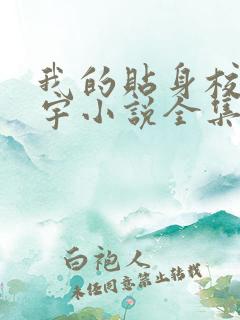 我的贴身校
字小说全集
白袍人
未经同意禁止转载